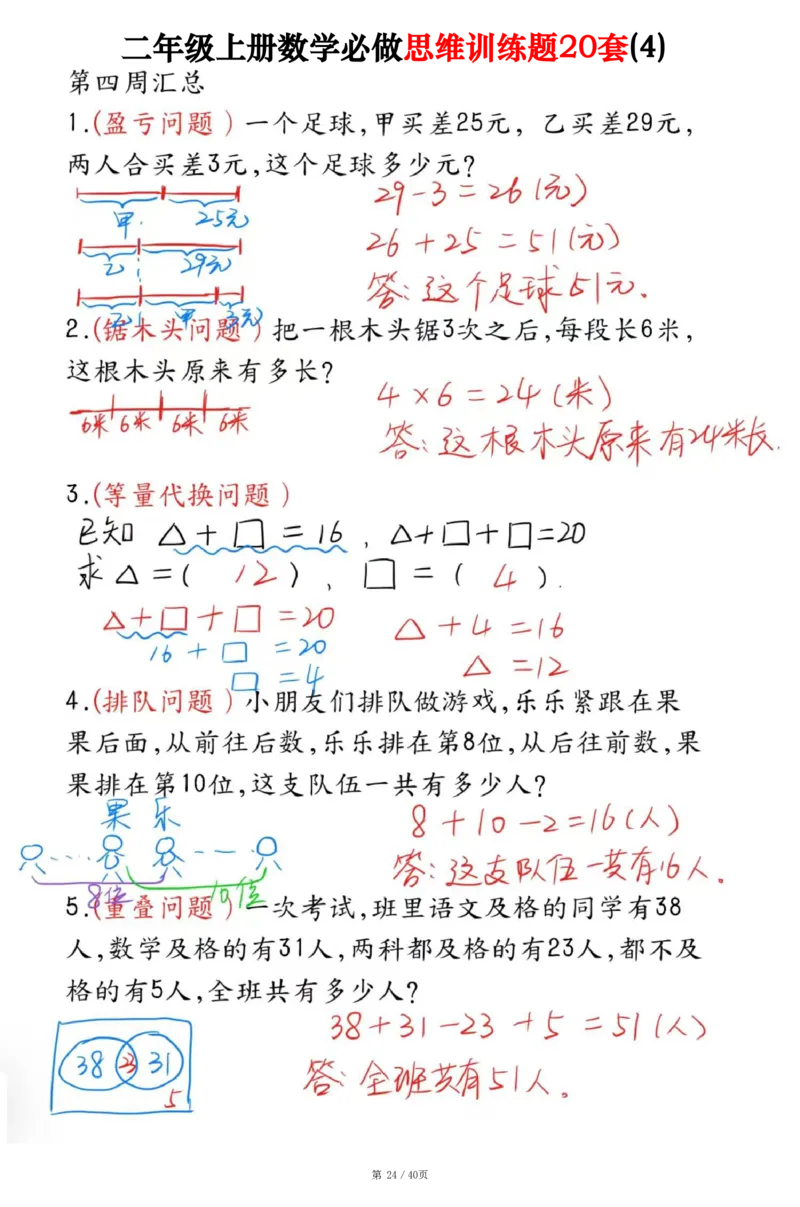 二年级上册数学必做思维训练题20套(4)
第四周汇总
1.(盈亏问题)一个足球,甲买差25元, 乙买差29元,
两人合买差3元,这个足球多少元?
甲. 25元
乙 29元
乙 甲 3元
29-3=26(元)
26+25=51(元)
答:这个足球51元.
2.(锯木头问题)把一根木头锯3次之后,每段长6米,
这根木头原来有多长?
6米 6米 6米 6米
4×6=24(米)
答:这根木头原来有24米长.
3.(等量代换问题)
已知 △+□=16 , △+□+□=20
求△=( 12 ), □=( 4 ).
△+□+□=20
16+□=20
□=4
△+4=16
△=12
4.(排队问题)小朋友们排队做游戏,乐乐紧跟在果
果后面,从前往后数,乐乐排在第8位,从后往前数,果
果排在第10位,这支队伍一共有多少人?
果 乐
8位 10位
8+10-2=16(人)
答:这支队伍一共有16人.
5.(重叠问题)一次考试,班里语文及格的同学有38
人,数学及格的有31人,两科都及格的有23人,都不及
格的有5人,全班共有多少人?
38 23 31
5
38+31-23+5=51(人)
答:全班共有51人。
第 24 / 40页